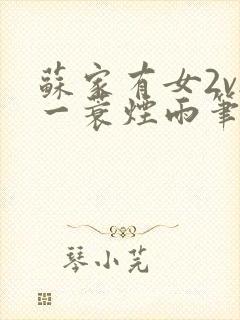 蘇家有女2v
一蓑煙雨筆
琴小芫